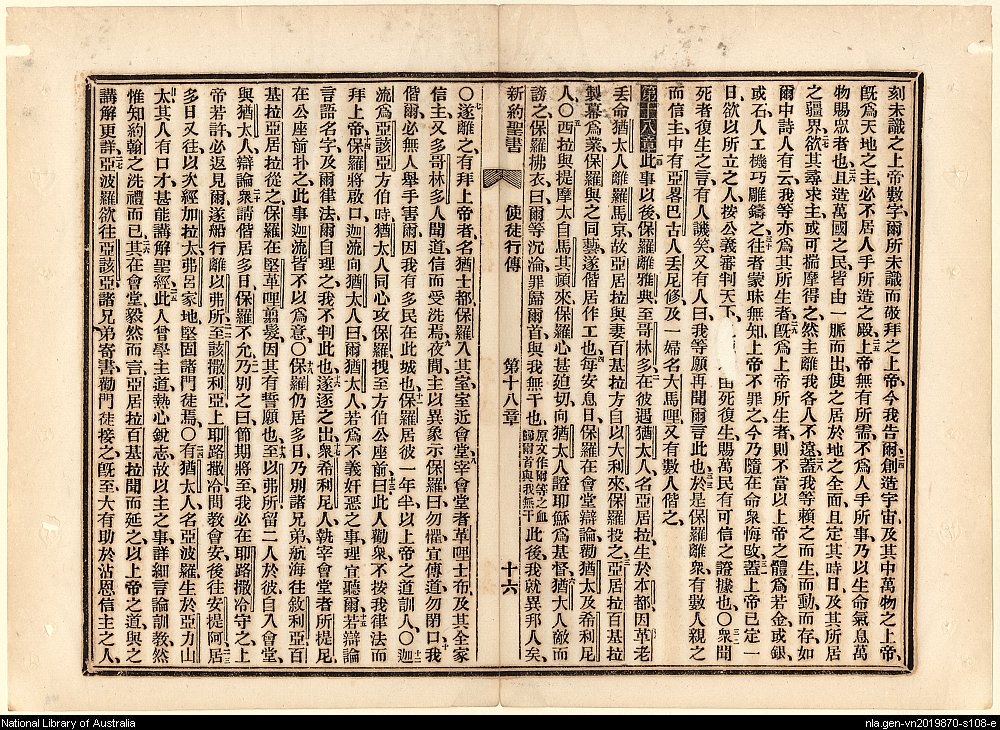 刻未識之上帝數字、爾所未識而敬拜之上帝、今我告爾、創造宇宙、及其中萬物之上帝、
既爲天地之主、必不居人手所造之殿、上帝無有所需、不爲人手所事、乃以生命氣息萬
物賜眾者也、且造萬國之民、皆由一脈而出、使之居於地之全面、且定其時日、及其所居
之疆界、欲其尋求主、或可揣摩得之、然主離我各人不遠、蓋我等賴之而生而動而存、如
爾中詩人有云、我等亦爲其所生者、旣爲上帝所生者、則不當以上帝之體、爲若金或銀
或石、人工機巧雕鑄之、往者蒙昧無知、上帝不罪之、今乃隨在命衆悔改、蓋上帝已定一
日、欲以所立之人、按公義審判天下、由死復生、賜萬民有可信之證據也、○衆聞
死者復生之言、有人譏笑、又有人曰、我等願再聞爾言此也、於是保羅離衆、有數人親之
而信主、中有亞畧巴古人丟尼修、及一婦名大馬哩、又有數人偕之、
第十八章 此事以後、保羅離雅典至哥林多、在彼遇猶太人名亞居拉、生於本都、因革老
丟命猶太人離羅馬京、故亞居拉與妻百基拉、方自以大利來、保羅投之、亞居拉百基拉
製幕爲業、保羅與之同藝、遂偕居作工也、每安息日、保羅在會堂辯論、勸猶太及希利尼
人、○西拉與提摩太自馬其頓來、保羅心甚廹切、向猶太人證耶穌爲基督、猶太人敵而
謗之、保羅拂衣曰、爾等沉淪、罪歸爾首、與我無干也、原文作爾等之血歸爾首與我無干 此後、我就異邦人矣、
新約聖書 使徒行傳 第十八章 十六
○遂離之、有拜上帝者、名猶士都、保羅入其室、室近會堂、宰會堂者革哩士布、及其全家
信主、又多哥林多人聞道、信而受洗焉、夜間主以異象示保羅曰、勿懼、宜傳道、勿閉口、我
偕爾、必無人舉手害爾、因我有多民在此城也、保羅居彼一年半、以上帝之道訓人、○迦
流爲亞該亞方伯時、猶太人同心攻保羅、拽至方伯公座前曰、此人勸衆、不按我律法而
拜上帝、保羅將啟口、迦流向猶太人曰、爾猶太人、若爲不義奸惡之事、理宜聽爾、若辯論
言語名字、及爾律法、爾自理之、我不判此也、遂逐之出、衆希利尼人、執宰會堂者所提尼、
在公座前扑之、此事迦流皆不以爲意、○保羅仍居多日、乃別諸兄弟、航海往敘利亞、百
基拉亞居拉從之、保羅在堅革哩翦髮、因其有誓願也、至以弗所、留二人於彼、自入會堂
與猶太人辯論、衆請偕居多日、保羅不允、乃別之曰、節期將至、我必在耶路撒冷守之、上
帝若許、必返見爾、遂船行離以弗所、至該撒利亞、上耶路撒冷問教會安、後往安提阿、居
多日又往、以次經加拉太弗呂家地、堅固諸門徒焉、○有猶太人名亞波羅、生於亞力山
太、其人有口才、甚能講解聖經、此人曾學主道、執心銳志、故以主之事、詳細言論訓教、然
惟知約翰之洗禮而已、其在會堂、毅然而言、亞居拉百基拉聞而延之、以上帝之道、與之
講解更詳、亞波羅欲往亞該亞、諸兄弟寄書勸門徒接之、旣至、大有助於沾恩信主之人、
National Library of Australia
nla.gen-vn2019870-s108-e